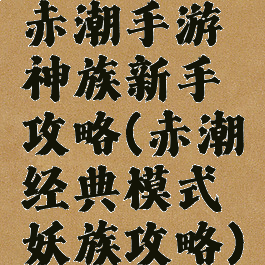 赤潮手游
神族新手
攻略(赤潮
经典模式
妖族攻略)